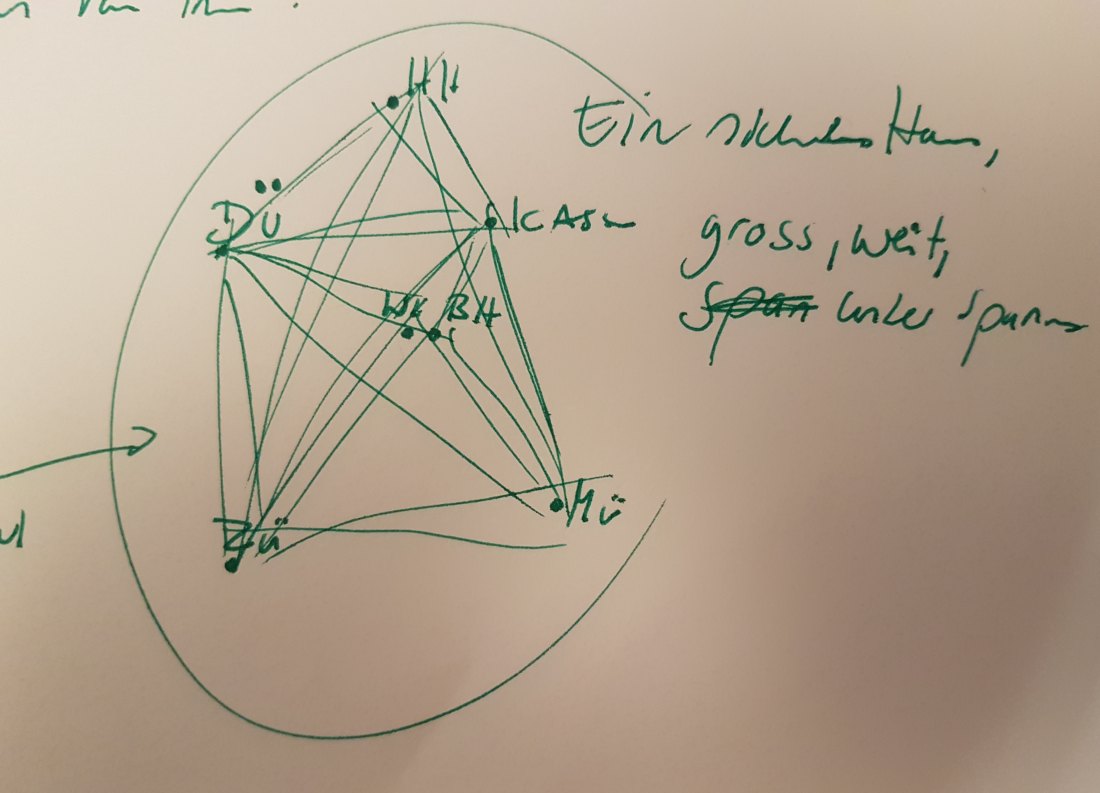 HH
DÜ
KASSL
Wü BH
Zü
Mü
Ein sicheres Haus,
gross, weit,
unter Spannung